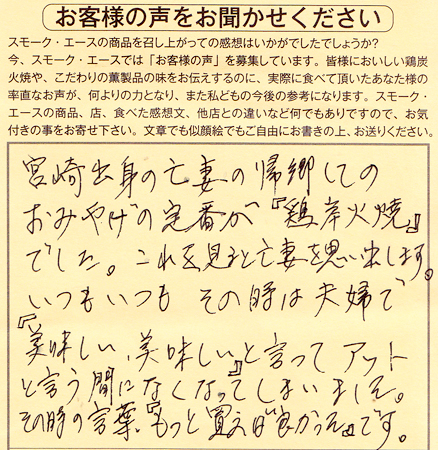 お客様の声をお聞かせください
スモーク・エースの商品を召し上がっての感想はいかがでしたでしょうか?
今、スモーク・エースでは「お客様の声」を募集しています。皆様においしい鶏炭
火焼や、こだわりの薫製品の味をお伝えするのに、実際に食べて頂いたあなた様の
率直なお声が、何よりの力となり、また私どもの今後の参考になります。スモーク・
エースの商品、店、食べた感想文、他店との違いなど何でもありですので、お気
付きの事をお寄せ下さい。文章でも似顔絵でもご自由にお書きの上、お送りください。
宮崎出身の亡妻の帰郷しての
おみやげの定番が『鶏炭火焼』
でした。これを見ると亡妻を思い出します。
いつもいつも その時は夫婦で
『美味しい、美味しい』と言って アット
と言う間になくなってしまいました。
その時の言葉、『もっと買えば良かった』です。